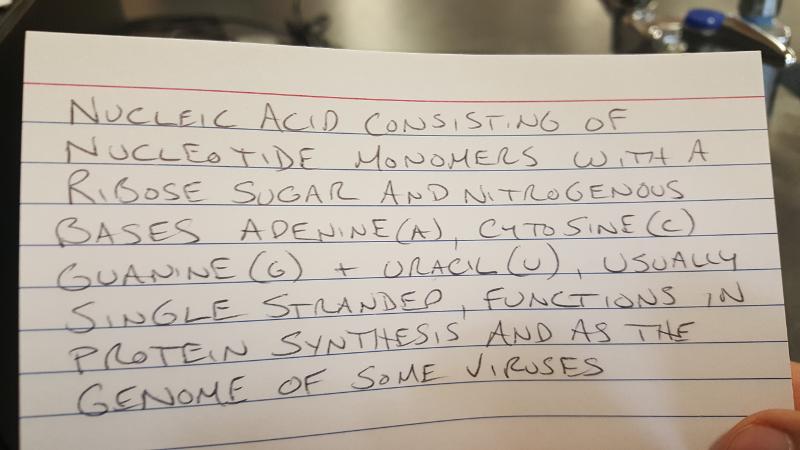 NUCLEIC ACID CONSISTING OF
NUCLEOTIDE MONOMERS WITH A
RIBOSE SUGAR AND NITROGENOUS
BASES ADENINE (A), CYTOSINE (C)
GUANINE (G) + URACIL (U), USUALLY
SINGLE STRANDED, FUNCTIONS IN
PROTEIN SYNTHESIS AND AS THE
GENOME OF SOME VIRUSES